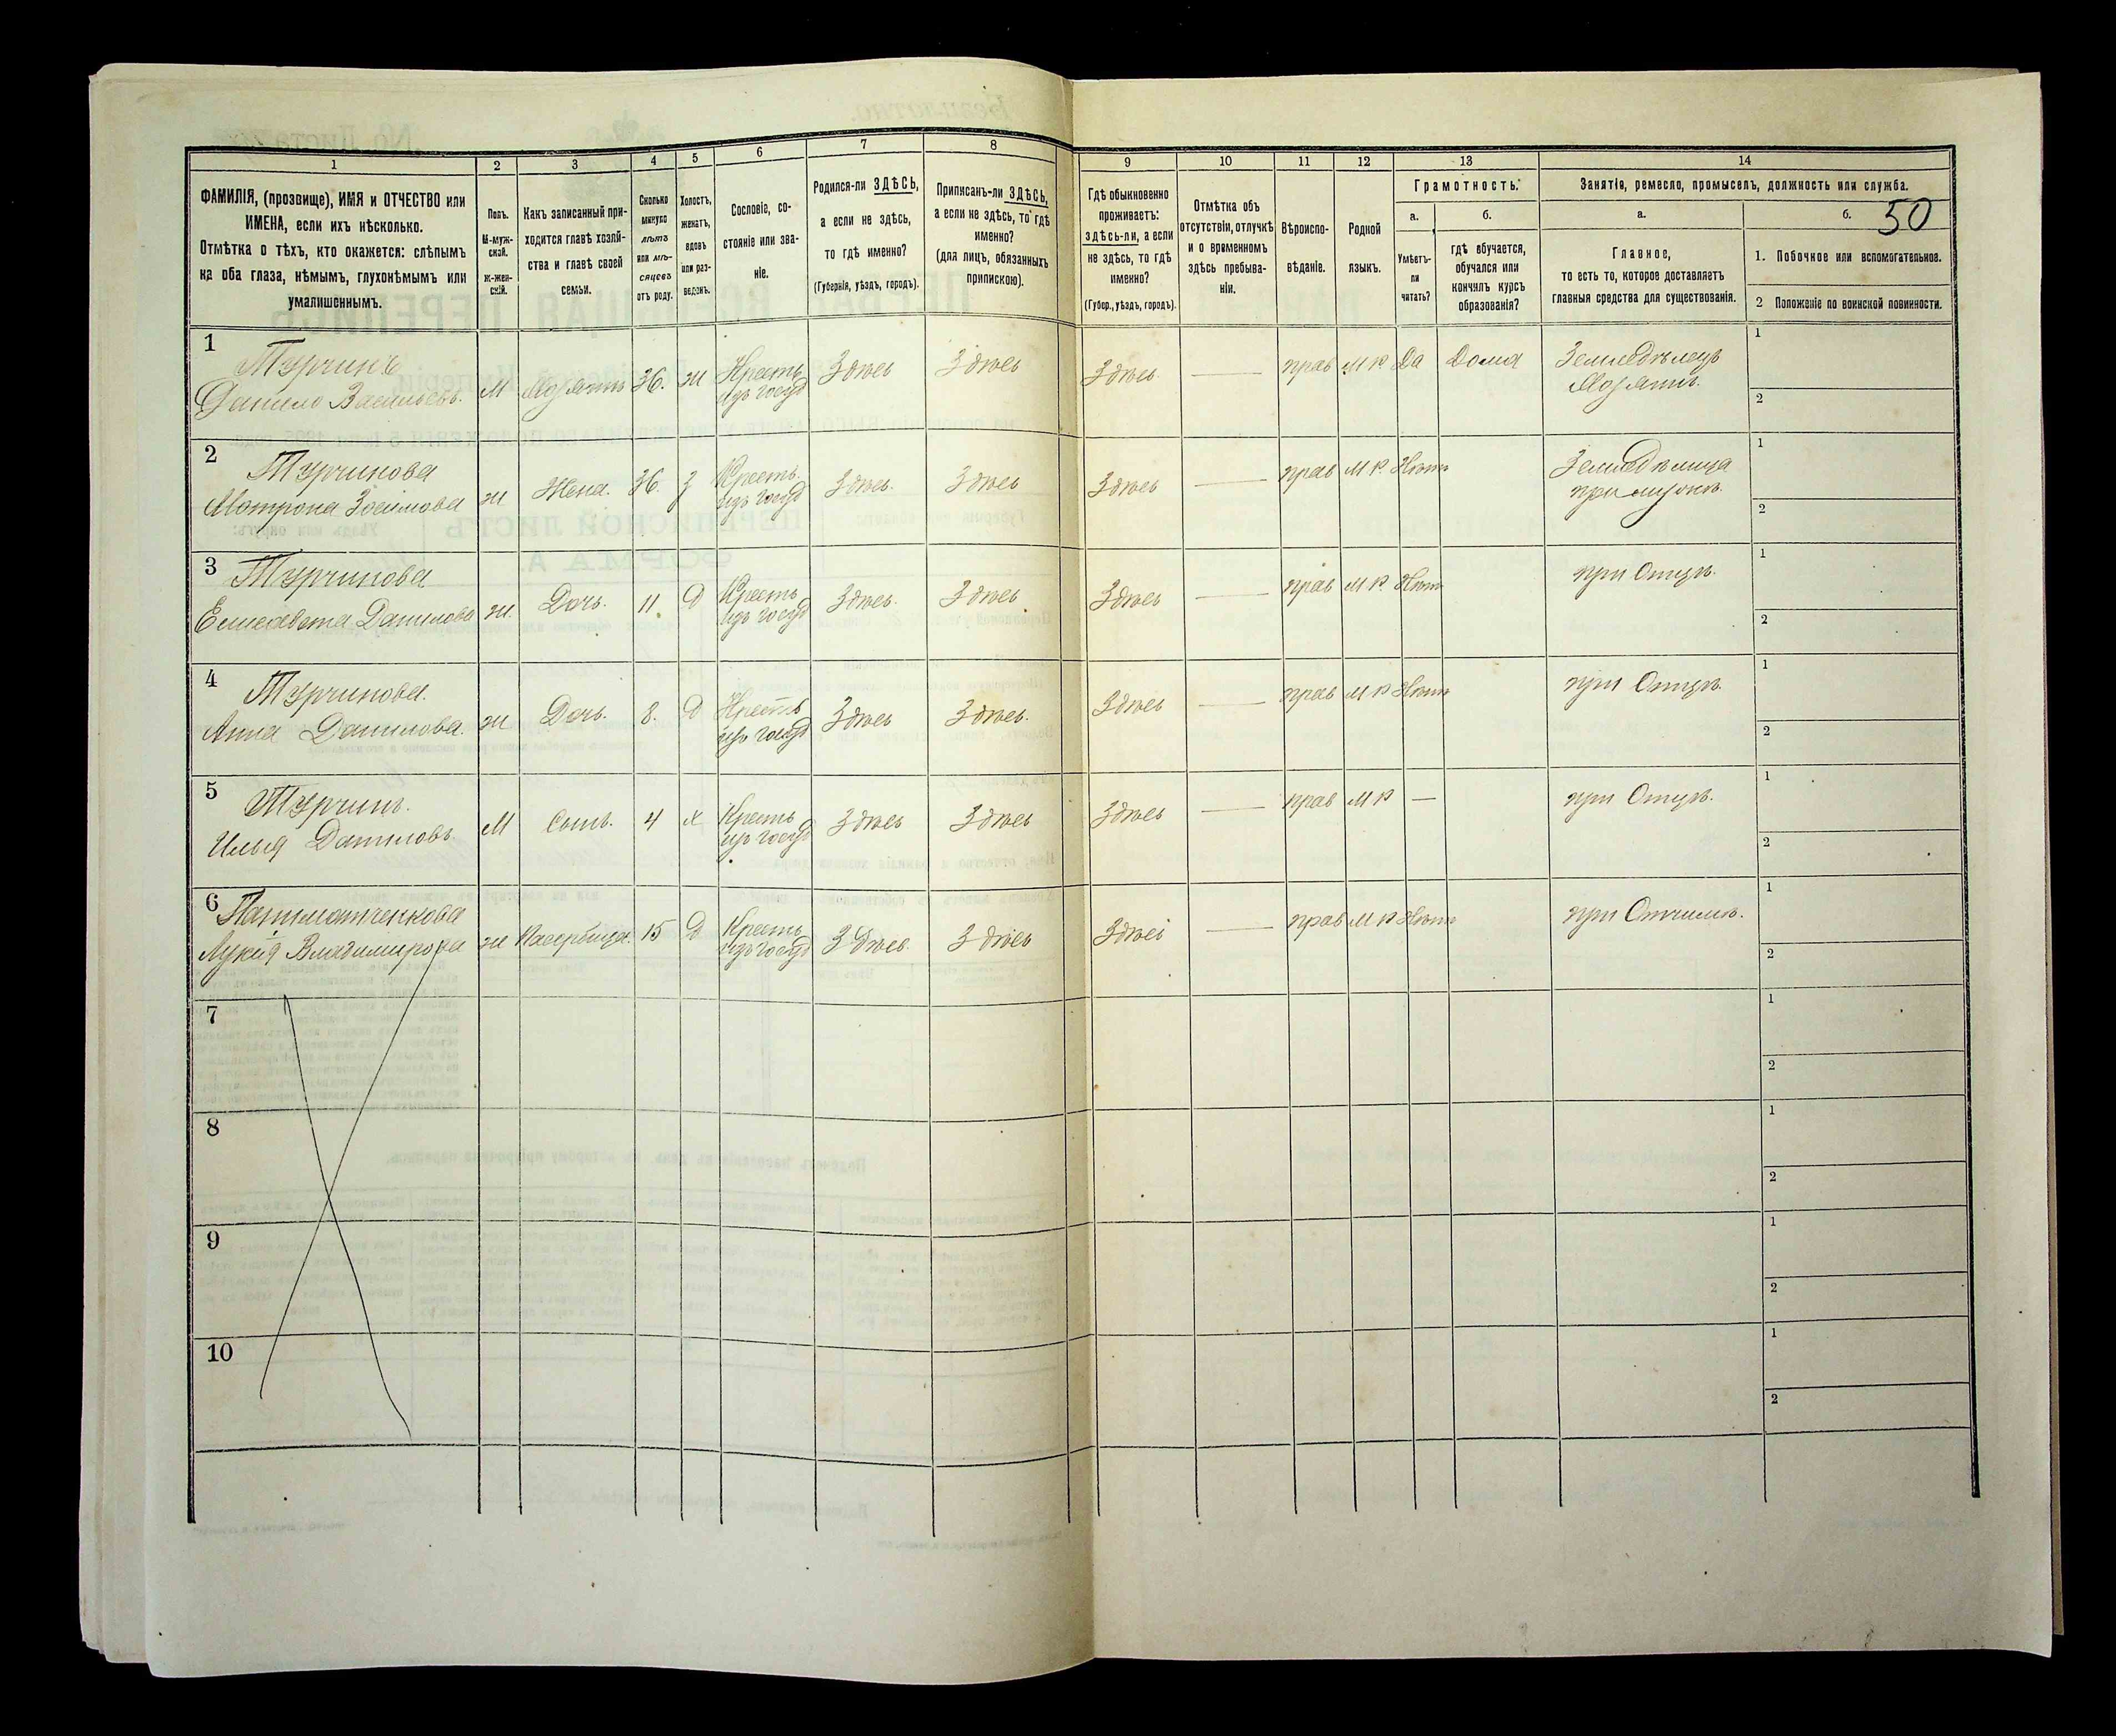 50
1
2
3
4
5
6
7
8
9
10
11
12
13
14
ФАМИЛІЯ, (прозвище), ИМЯ и ОТЧЕСТВО или
ИМЕНА, если ихъ нѣсколько.
Отмѣтка о тѣхъ, кто окажется: слѣпымъ
на оба глаза, нѣмымъ, глухонѣмымъ или
умалишеннымъ.
Полъ.
М-муж-
ской.
ж-жен-
скій.
Какъ записанный при-
ходится главѣ хозяй-
ства и главѣ своей
семьи.
Сколько
минуло
лѣтъ
или мѣ-
сяцевъ
отъ роду.
Холостъ,
женатъ,
вдовъ
или раз-
веденъ.
Сословіе, со-
стояніе или зва-
ніе.
Родился-ли ЗДѢСЬ,
а если не здѣсь,
то гдѣ именно?
(Губернія, уѣздъ, городъ).
Приписанъ-ли ЗДѢСЬ,
а если не здѣсь, то гдѣ
именно?
(для лицъ, обязанныхъ
припискою).
Гдѣ обыкновенно
проживаетъ:
здѣсь-ли, а если
не здѣсь, то гдѣ
именно?
(Губер., уѣздъ, городъ).
Отмѣтка объ
отсутствіи, отлучкѣ
и о временномъ
здѣсь пребыва-
ніи.
Вѣроиспо-
вѣданіе.
Родной
языкъ.
Грамотность.
а.
Умѣетъ-
ли
читать?
б.
гдѣ обучается,
обучался или
кончилъ курсъ
образованія?
Занятіе, ремесло, промыселъ, должность или служба.
а.
Главное,
то есть то, которое доставляетъ
главныя средства для существованія.
б.
1. Побочное или вспомогательное.
2 Положеніе по воинской повинности.
1 Турчинъ
Данило Васильевъ. м Хозяинъ 36. ж Крестъ изъ госуд Здѣсь Здѣсь Здѣсь — прав М Р Да Дома Земледѣлецъ Хозяинъ. 1 2
2 Турчинова
Матрона Зосимова ж Жена. 36. з Крестъ. изъ госуд Здѣсь. Здѣсь Здѣсь — прав М Р Нѣтъ Земледѣлица при мужѣ. 1 2
3 Турчинова
Елисавета Данилова ж. Дочь. 11. д Крестъ изъ госуд Здѣсь. Здѣсь Здѣсь — прав М Р. Нѣтъ при Отцѣ. 1 2
4 Турчинова.
Анна Данилова. ж Дочь. 8. д Крестъ изъ госуд Здѣсь Здѣсь. Здѣсь — прав М Р Нѣтъ при Отцѣ. 1 2
5 Турчинъ.
Илья Даниловъ. м Сынъ. 4 х Крестъ изъ госуд Здѣсь Здѣсь Здѣсь — прав М Р — при Отцѣ. 1 2
6
Лукія Владимирова ж 15 д Крестъ изъ госуд Здѣсь. Здѣсь Здѣсь — прав М Р Нѣтъ при Отчимѣ. 1 2
7 1 2
8 1 2
9 1 2
10 1 2